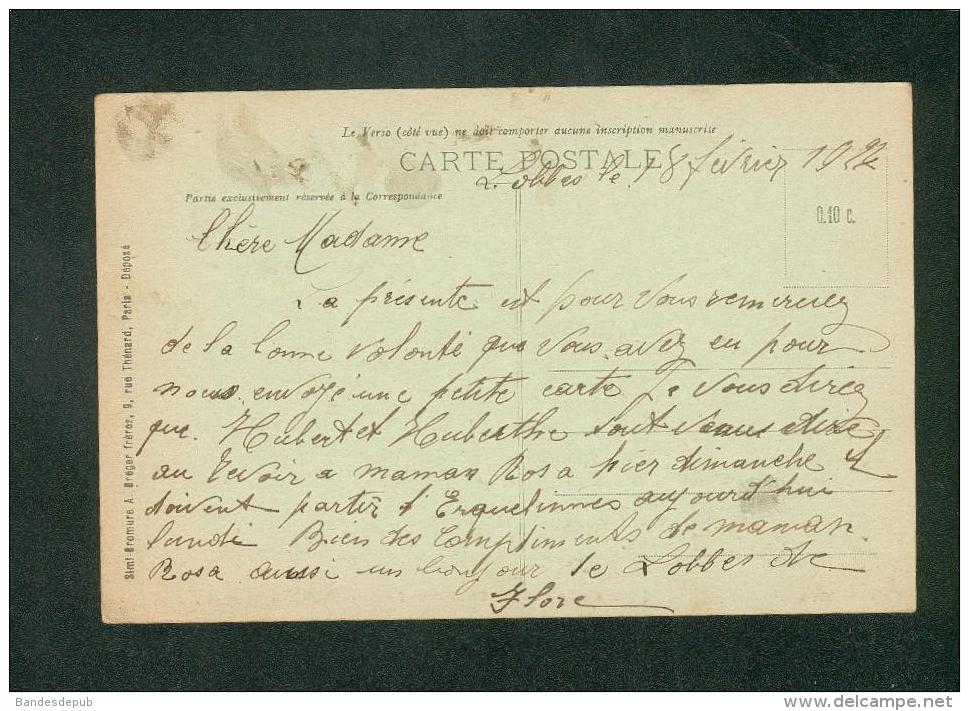 Le Verso (côté vue) ne doit comporter aucune inscription manuscrite
CARTE POSTALE
Lobbes le 18 février 19
Partie exclusivement réservée à la Correspondance
0.10 c.
Chère Madame
La présente est pour vous remerciez
de la bonne volonté que vous avez eu pour
nous envoyé une petite carte je vous direz
que Hubert et Huberthe sont venus dire
au revoir a maman Rosa hier dimanche et
doivent partir d'Erquelinnes aujourd'hui
lundi Bien des Compliments de maman
Rosa aussi un bonjour de Lobbes de
Flore
Simi-Bromure A. Breger frères, 9, rue Thénard, Paris - Déposé
Bandesdepub
www.delcampe.net